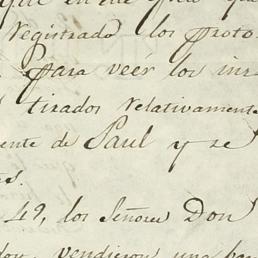 registrado los proto
para veér los ins
tirados relativamente
ente de Paul y se
es.
49, los Señores Don
vendieron una